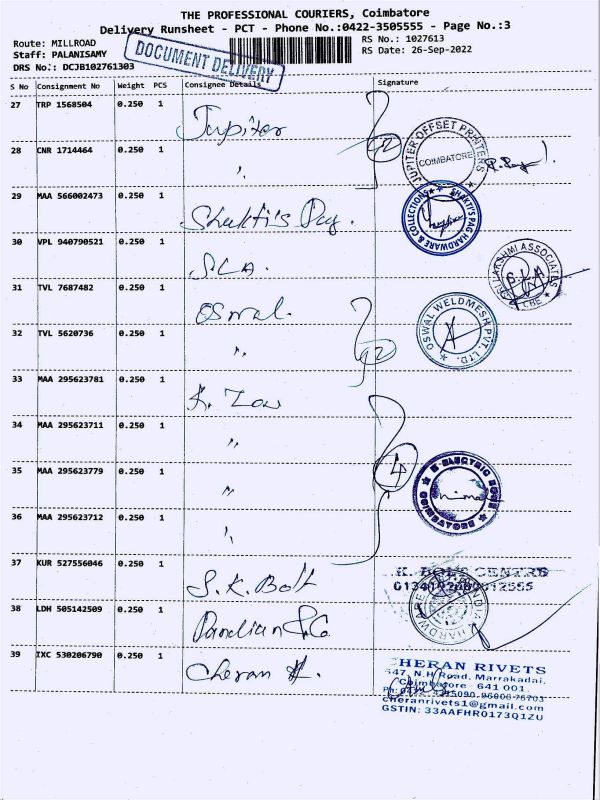 THE PROFESSIONAL COURIERS, Coimbatore
Delivery Runsheet - PCT - Phone No.:0422-3505555 - Page No.:3
Route: MILLROAD
Staff: PALANISAMY
DRS No.: DCJB102761303
DOCUMENT DELIVERY
RS No.: 1027613
RS Date: 26-Sep-2022
S No Consignment No Weight PCS Consignee Details Signature
27 TRP 1568504 0.250 1 Jupiter
28 CNR 1714464 0.250 1 "
JUPITER OFFSET PRINTERS
COIMBATORE
29 MAA 566002473 0.250 1 Shakti's Pag.
SHAKTI'S PAG HARDWARE & COLLECTIONS
30 VPL 940790521 0.250 1 S.L.A.
LAKSHMI ASSOCIATES
S.L.A
CBE
31 TVL 7687482 0.250 1 Oswal.
32 TVL 5620736 0.250 1 "
OSWAL WELDMESH PVT. LTD.
33 MAA 295623781 0.250 1
34 MAA 295623711 0.250 1 "
35 MAA 295623779 0.250 1 "
4
ELECTRIC
COIMBATORE
36 MAA 295623712 0.250 1 "
37 KUR 527556046 0.250 1 S.K. Bolt
CENTRE
38 LDH 505142509 0.250 1 Pandian
HARDWARE
39 IXC 530206790 0.250 1 Cheran
CHERAN RIVETS
547, N.H Road, Marrakadai,
Coimbatore - 641 001.
cheranrivets1@gmail.com
GSTIN: 33AAFHR0173Q1ZU